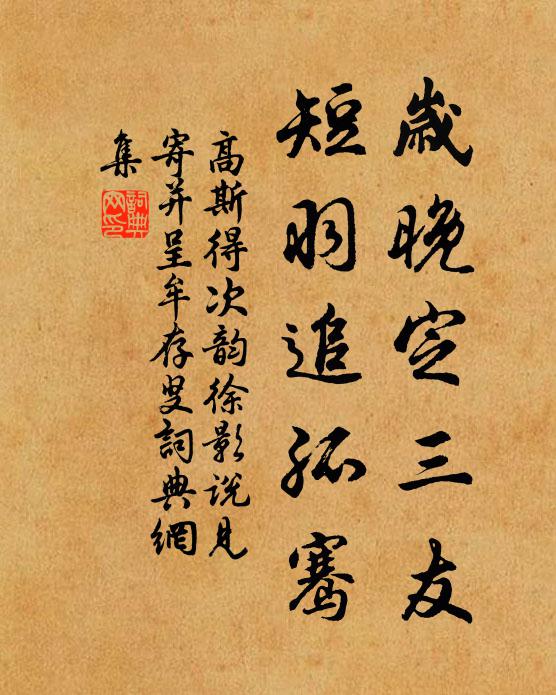 歲晚定三友
短羽追孤騫
高斯得次韵徐影說見
寄并呈牟存叟詞典網
集
詞典
网印